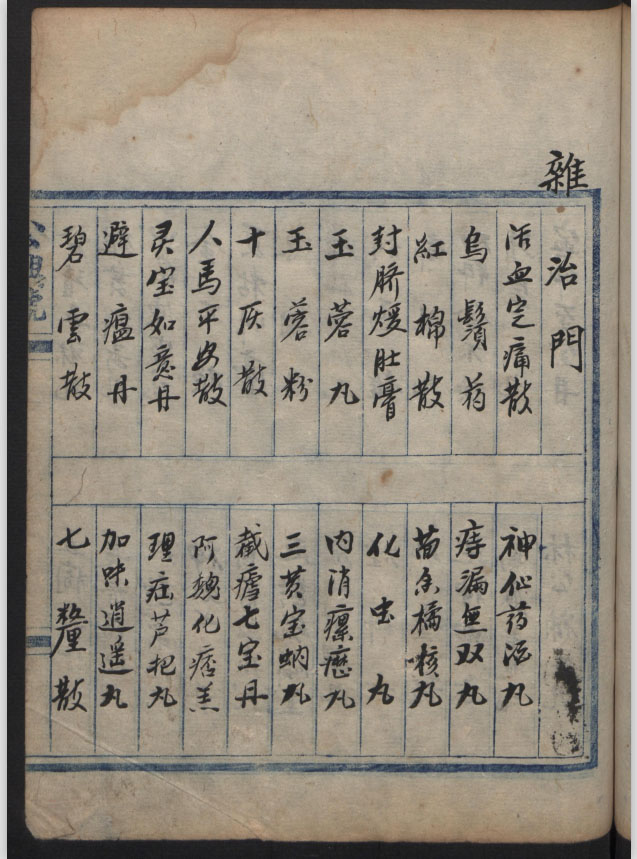 雜治門
活血定痛散
烏鬚药
紅棉散
封臍煖肚膏
玉蓉丸
玉蓉粉
十灰散
人馬平安散
灵宝如意丹
避瘟丹
碧雲散
神仙药酒丸
痔漏無双丸
茴香橘核丸
化虫丸
内消瘰癧丸
三黄宝蜡丸
截瘧七宝丹
阿魏化痞羔
理疝芦杷丸
加味逍遥丸
七釐散